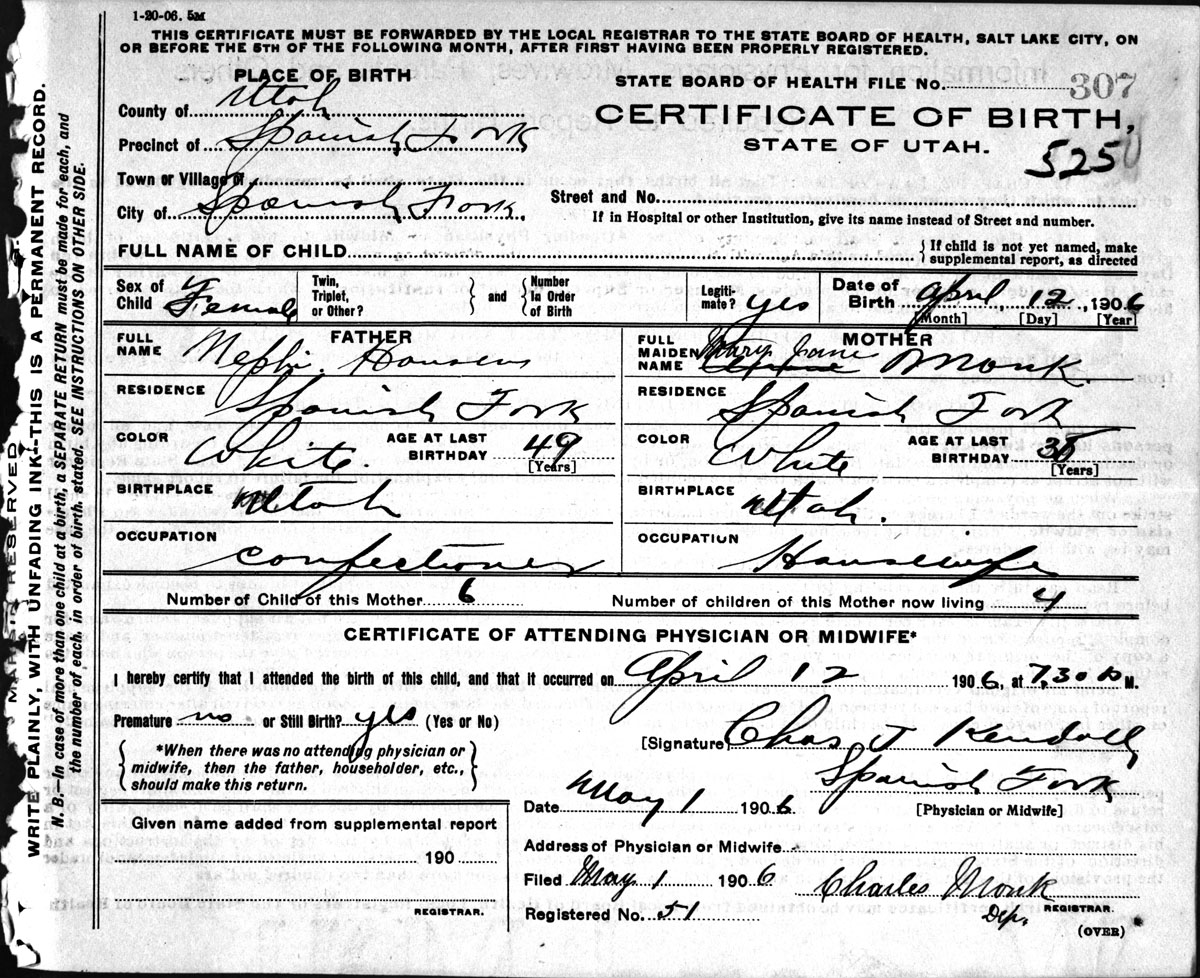 1-20-06. 5M
THIS CERTIFICATE MUST BE FORWARDED BY THE LOCAL REGISTRAR TO THE STATE BOARD OF HEALTH, SALT LAKE CITY, ON
OR BEFORE THE 5TH OF THE FOLLOWING MONTH, AFTER FIRST HAVING BEEN PROPERLY REGISTERED.
PLACE OF BIRTH
County of Utah
Precinct of Spanish Fork
Town or Village of
City of Spanish Fork.
STATE BOARD OF HEALTH FILE No. 307
CERTIFICATE OF BIRTH,
STATE OF UTAH.
525
Street and No.
If in Hospital or other Institution, give its name instead of Street and number.
FULL NAME OF CHILD
{ If child is not yet named, make
supplemental report, as directed
Sex of Child Female
Twin, Triplet, or Other? } and { Number in Order of Birth
Legiti- mate? yes
Date of Birth April 12, 1906
[Month] [Day] [Year]
FATHER
FULL NAME Nephi Hansen
RESIDENCE Spanish Fork
COLOR White.
AGE AT LAST BIRTHDAY 49
[Years]
BIRTHPLACE Utah
OCCUPATION Confectioner
MOTHER
FULL MAIDEN NAME Mary Jane Monk.
RESIDENCE Spanish Fork
COLOR White
AGE AT LAST BIRTHDAY
[Years]
BIRTHPLACE Utah.
OCCUPATION Housewife
Number of Child of this Mother 6
Number of children of this Mother now living 4
CERTIFICATE OF ATTENDING PHYSICIAN OR MIDWIFE*
I hereby certify that I attended the birth of this child, and that it occurred on April 12 1906, at 7,30 M.
Premature no or Still Birth? yes (Yes or No)
{ *When there was no attending physician or
midwife, then the father, householder, etc.,
should make this return. }
[Signature] Chas J Kendall
Spanish Fork
[Physician or Midwife]
Date May 1 1906
Address of Physician or Midwife
Given name added from supplemental report
190
REGISTRAR.
Filed May 1 1906
Charles Monk
Dep. REGISTRAR.
Registered No. 51
(OVER)
MARGIN RESERVED
WRITE PLAINLY, WITH UNFADING INK--THIS IS A PERMANENT RECORD.
N. B.--In case of more than one child at a birth, a SEPARATE RETURN must be made for each, and
the number of each, in order of birth, stated. SEE INSTRUCTIONS ON OTHER SIDE.